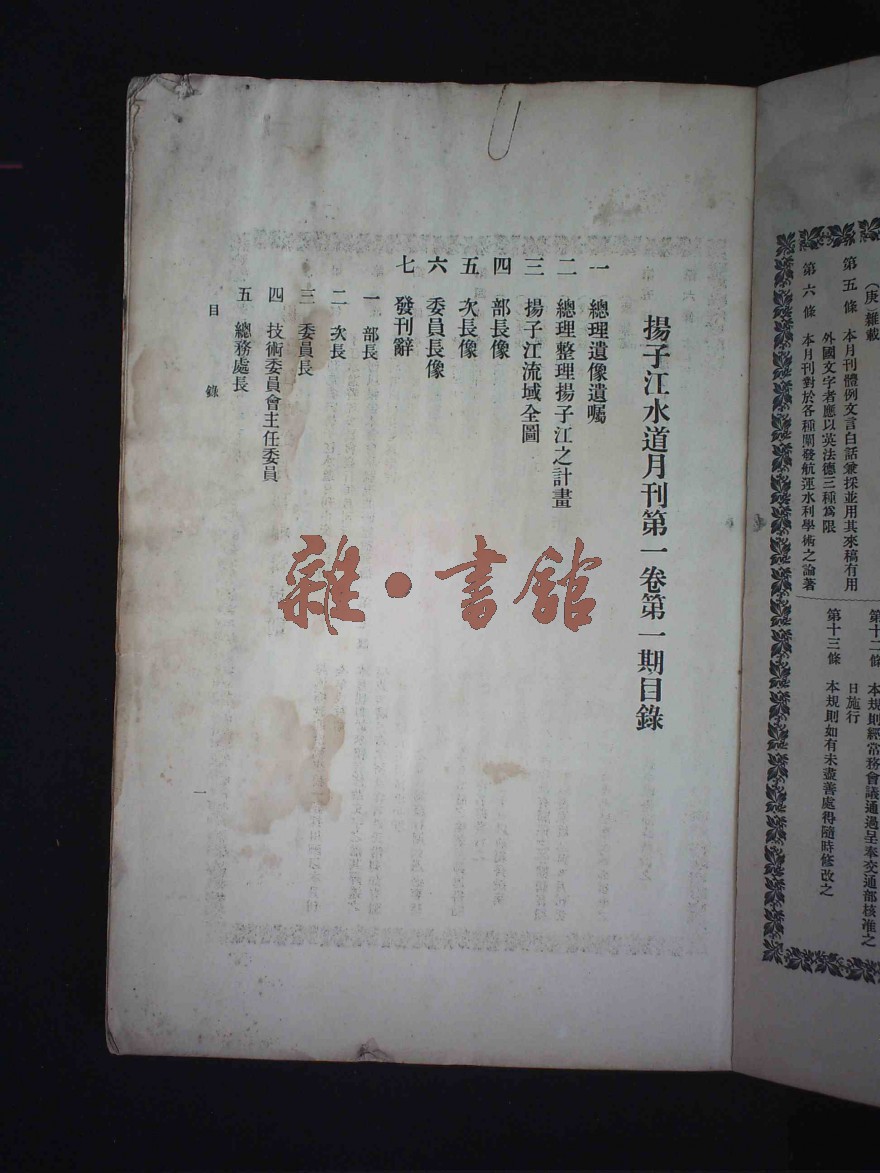 （庚）雜載
第五條　本月刊體例文言白話兼採並用其來稿有用
外國文字者應以英法德三種爲限
第六條　本月刊對於各種闡發航運水利學術之論著
第十二條　本規則經常務會議通過呈奉交通部核准之
日施行
第十三條　本規則如有未盡善處得隨時修改之
揚子江水道月刊第一卷第一期目錄
一　總理遺像遺囑
二　總理整理揚子江之計畫
三　揚子江流域全圖
四　部長像
五　次長像
六　委員長像
七　發刊辭
一　部長
二　次長
三　委員長
四　技術委員會主任委員
五　總務處長
目錄
一
雜・書館